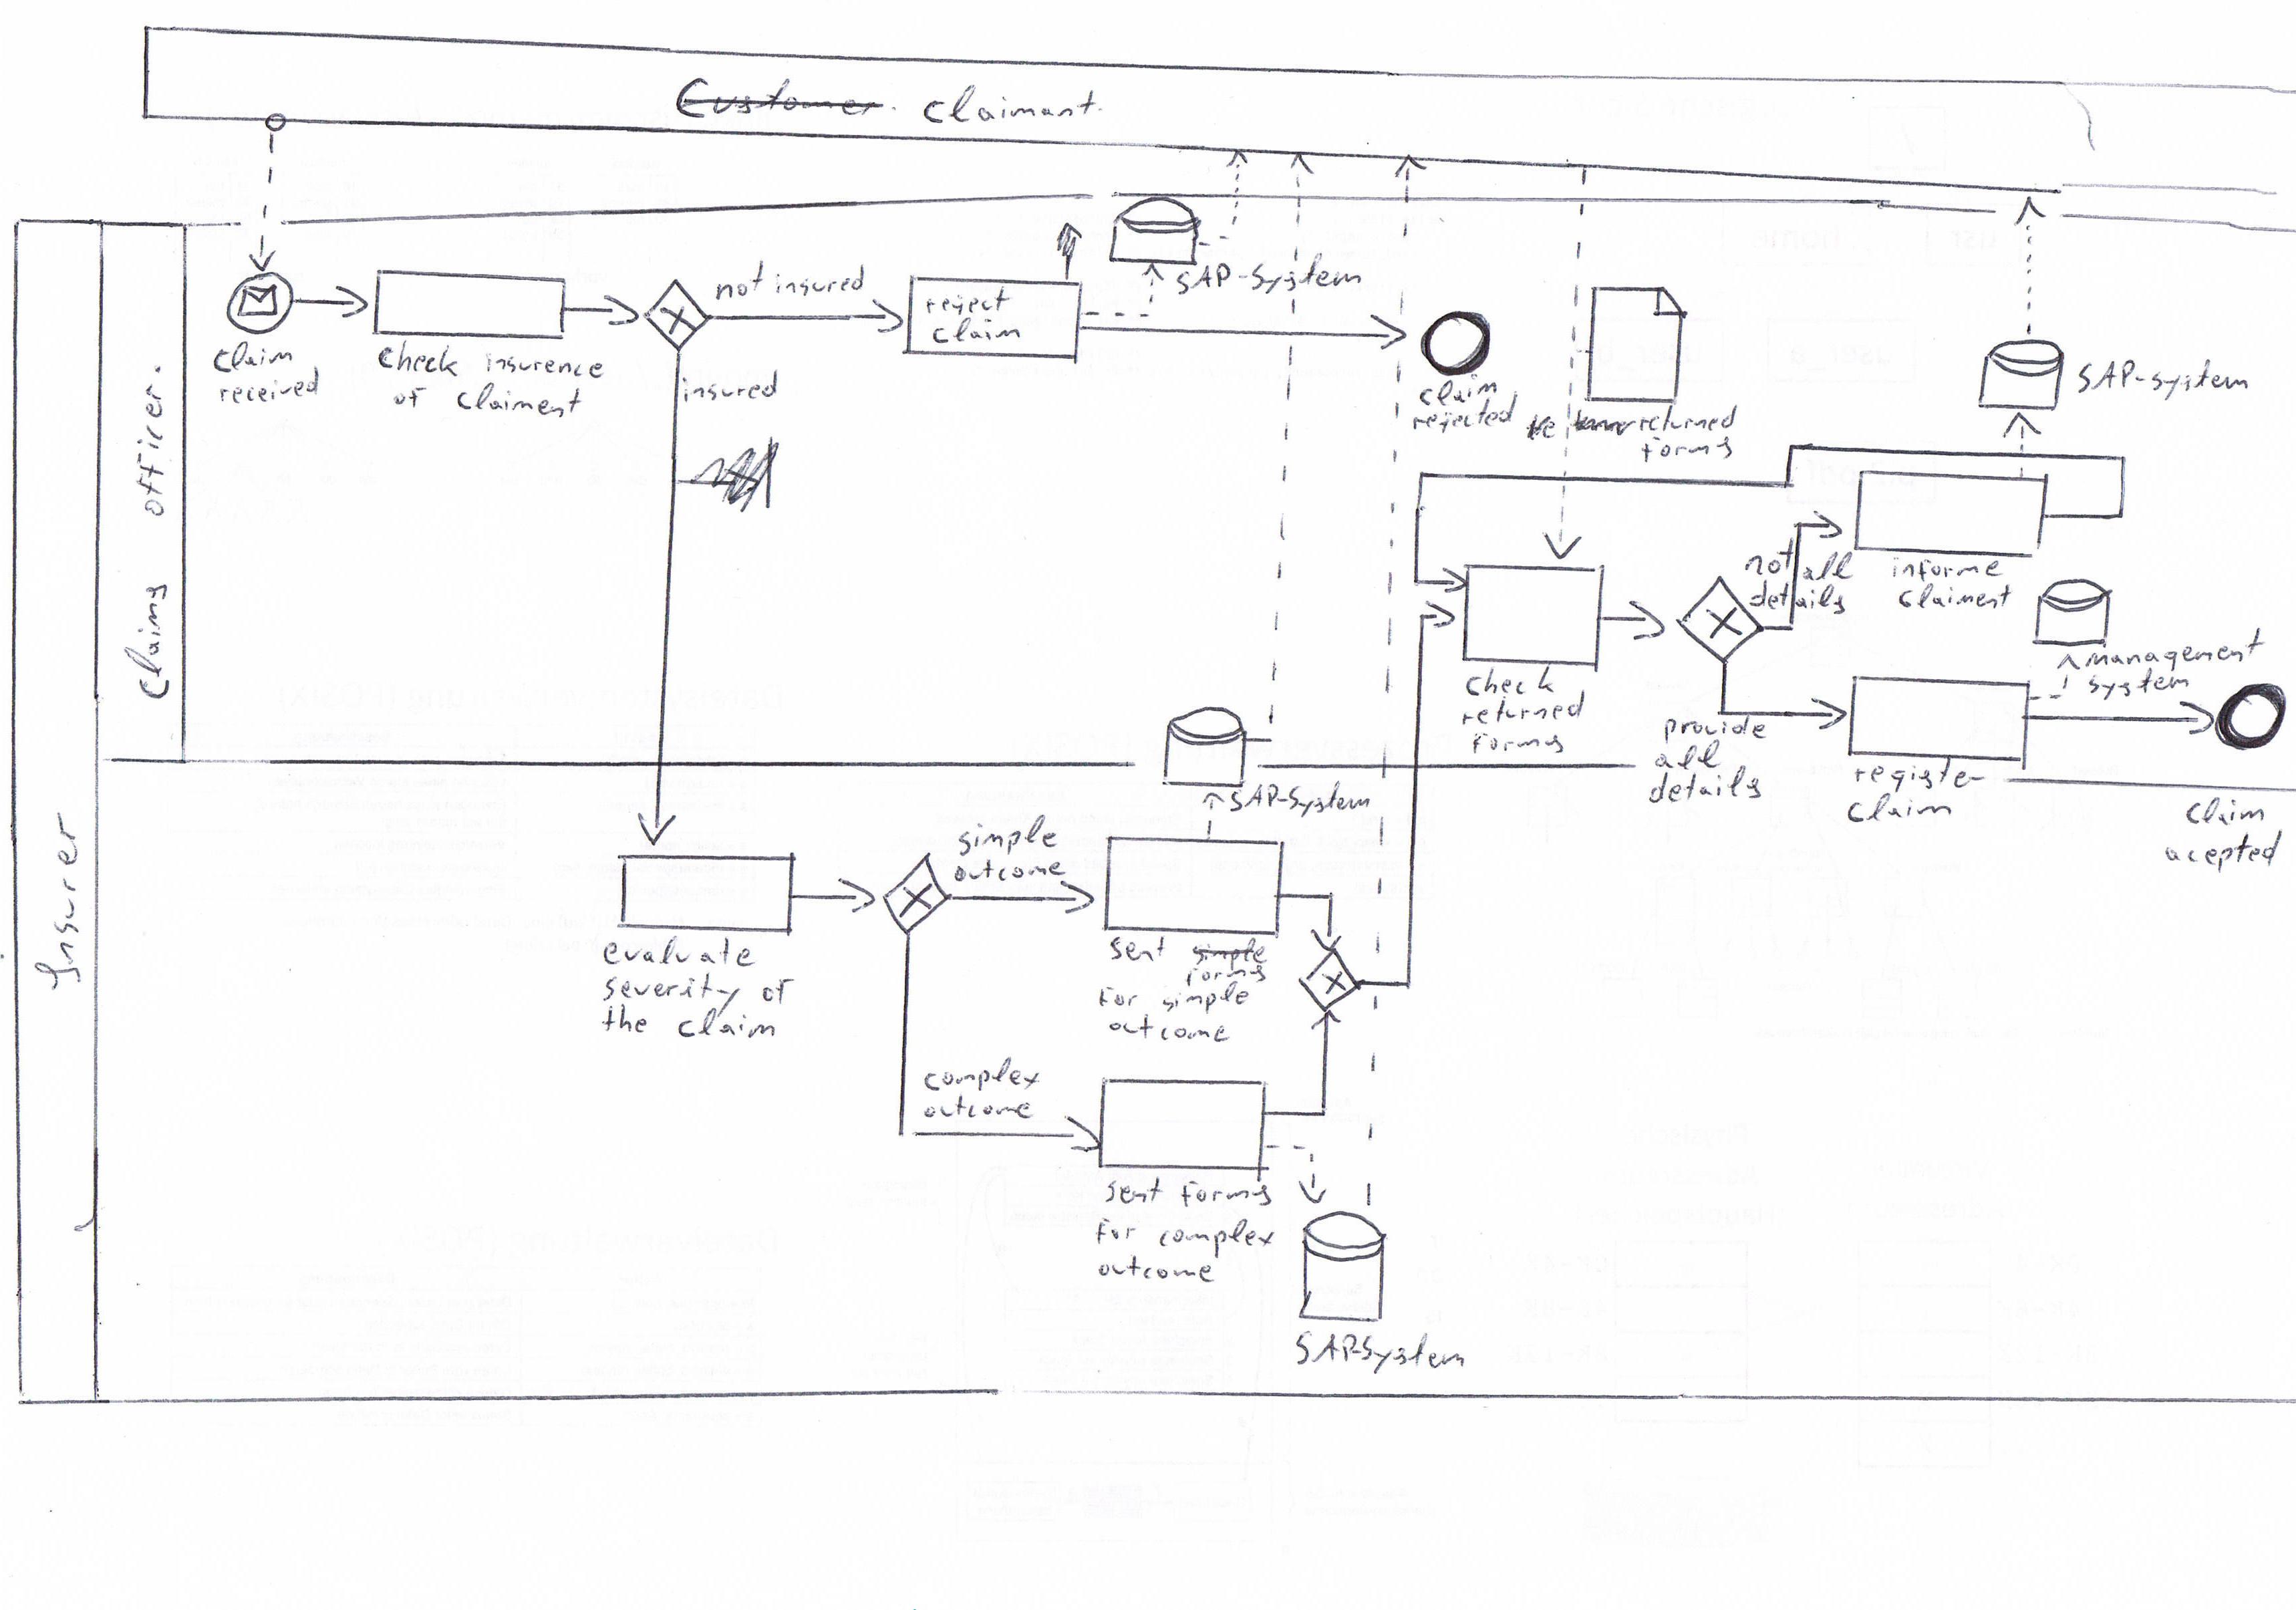 Customer. Claimant.
Insurer
Claims officer.
claim
received
check insurence
of claiment
not insured
insured
reject
claim
SAP-System
claim
rejected
returned
forms
SAP-system
check
returned
forms
not all
details
informe
claiment
management
system
provide
all
details
registe-
claim
claim
acepted
evaluate
severity of
the claim
simple
outcome
SAP-System
sent simple
forms
for simple
outcome
complex
outcome
sent forms
for complex
outcome
SAP-System